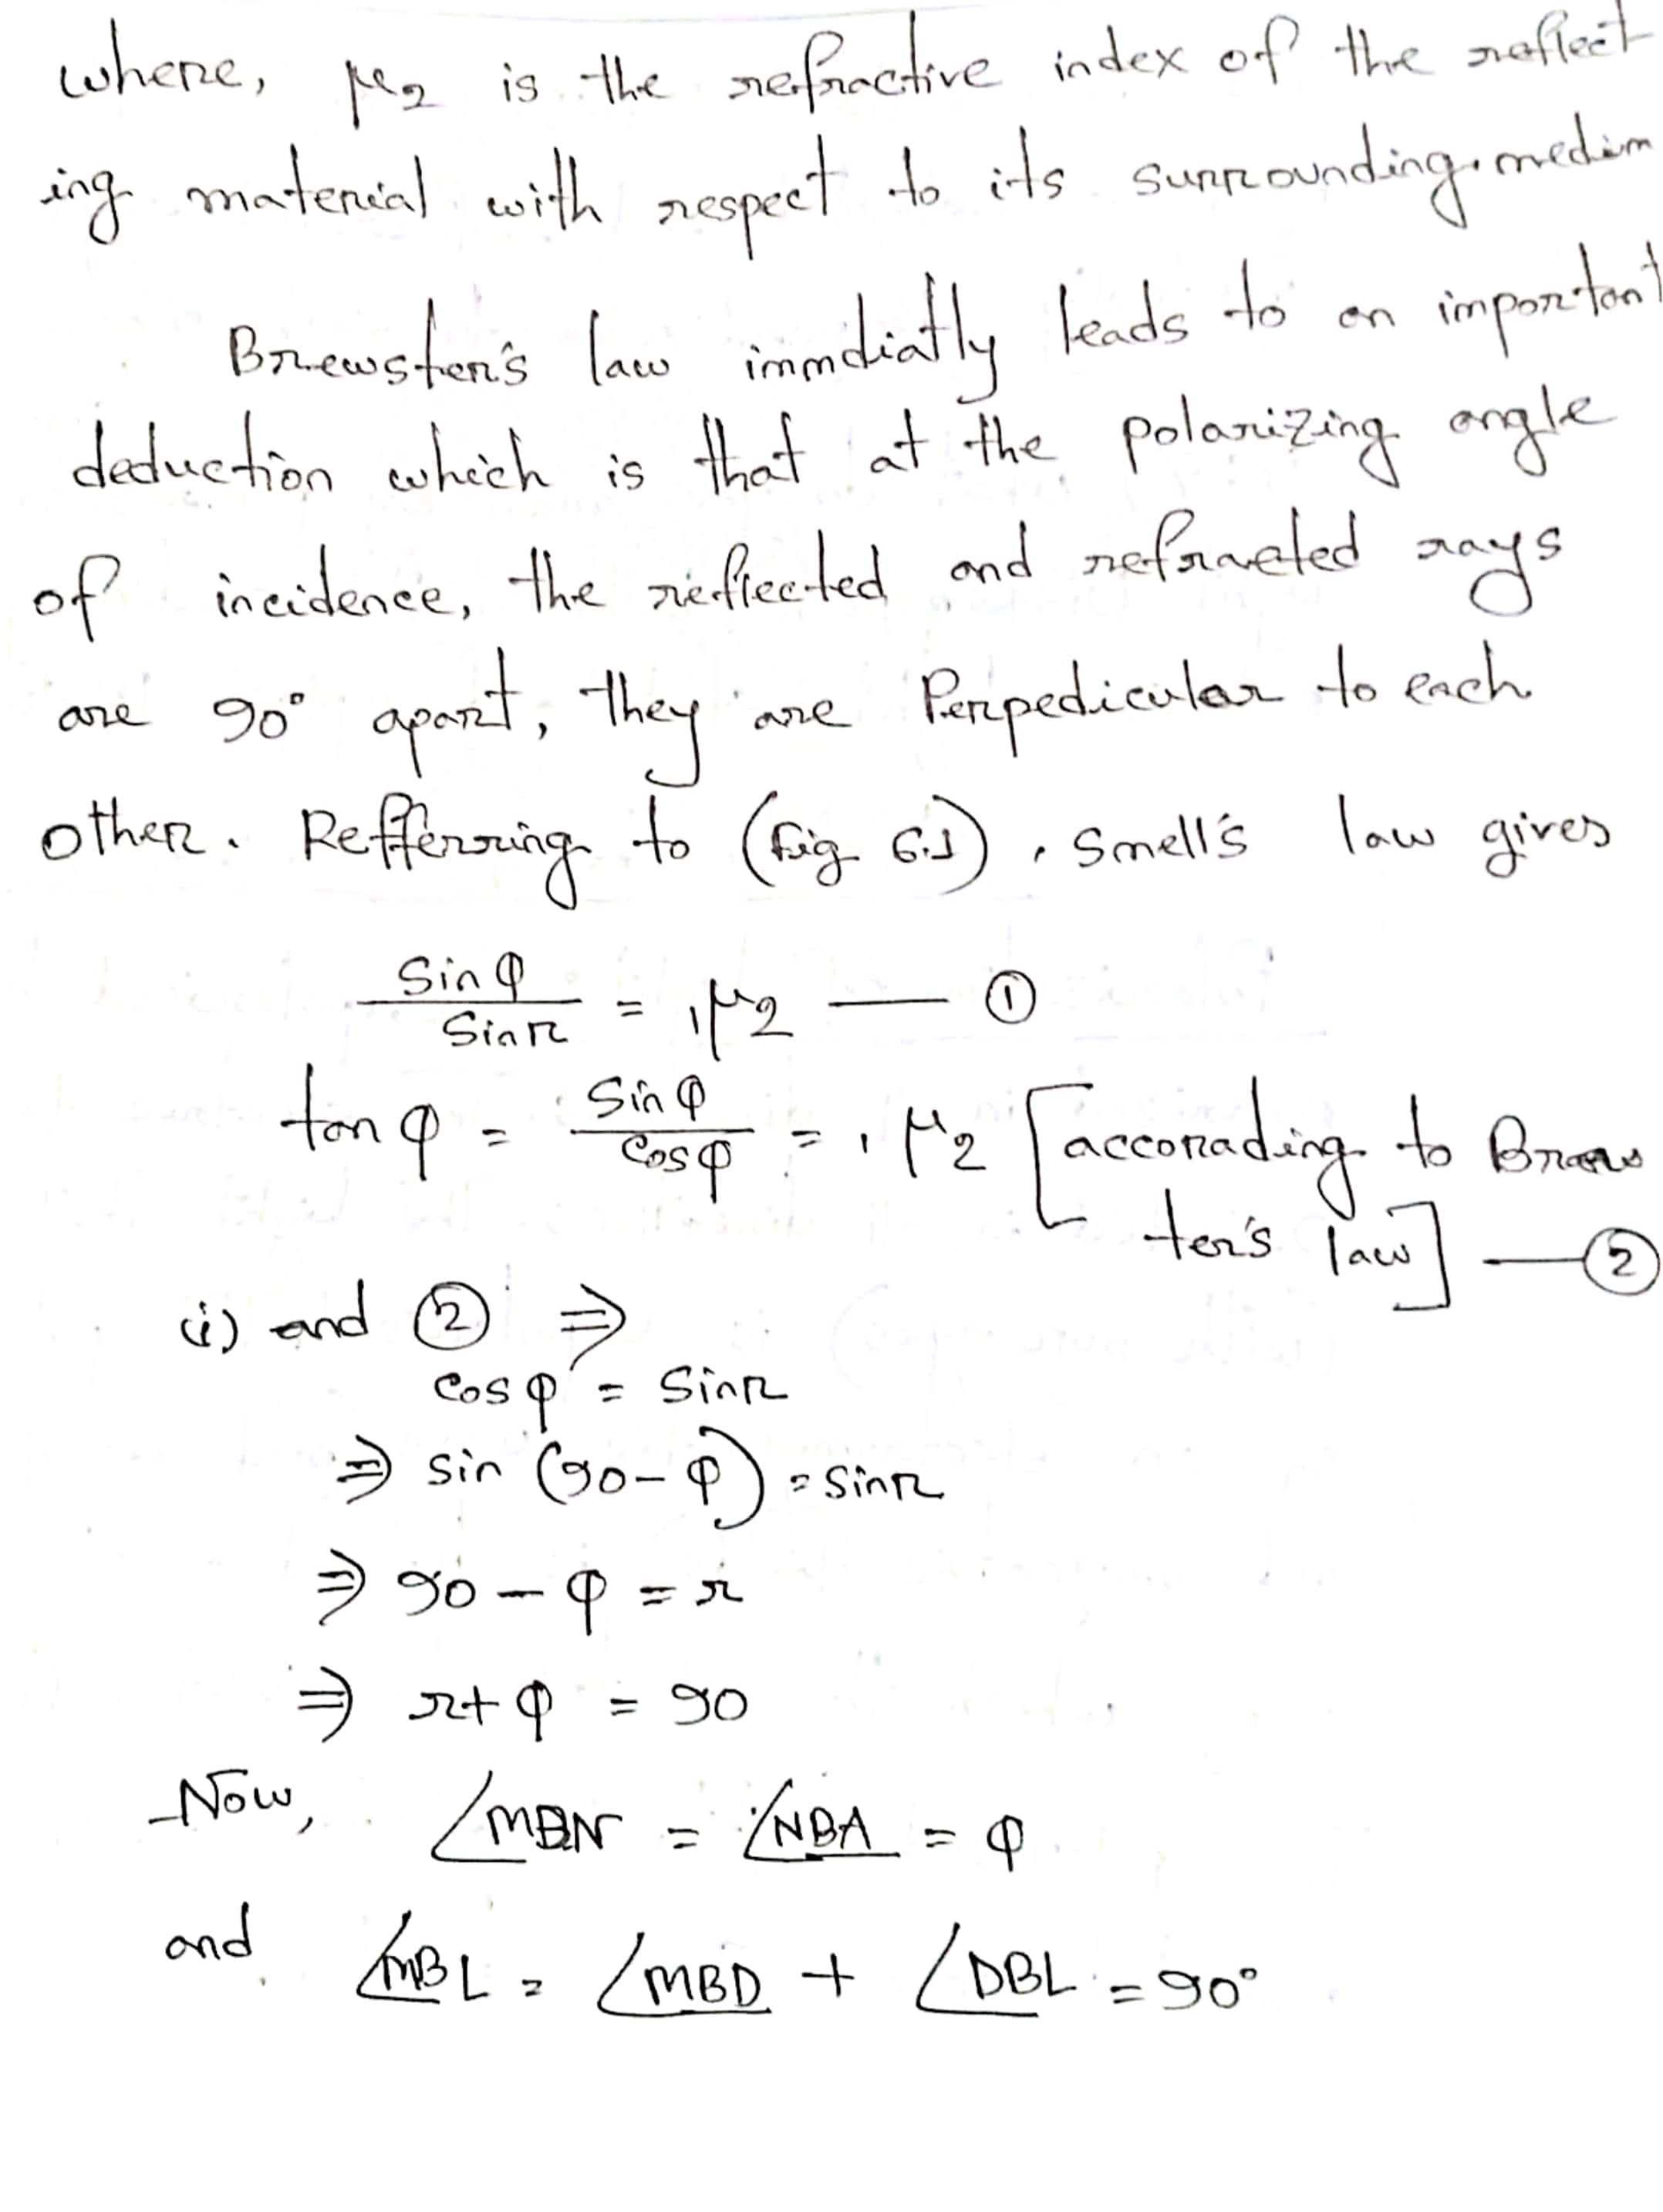 where, μ2 is the refractive index of the reflect
ing material with respect to its surrounding medim
Brewster's law immdiatly leads to an important
deduction which is that at the polarizing angle
of incidence, the reflected and refracted rays
are 90° apart, they are Perpedicular to each
other. Refferring to (fig 6.1), Smell's law gives
Sinφ / Sinr = ₁μ2 — ①
tanφ = Sinφ / Cosφ = ₁μ2 [accorading to Brews
ter's law] — ②
(i) and ② ⇒
Cosφ = Sinr
⇒ sin (90-φ) = sinr
⇒ 90 - φ = r
⇒ r+φ = 90
Now, ∠MBN = ∠NBA = φ
and ∠MBL = ∠MBD + ∠DBL = 90°